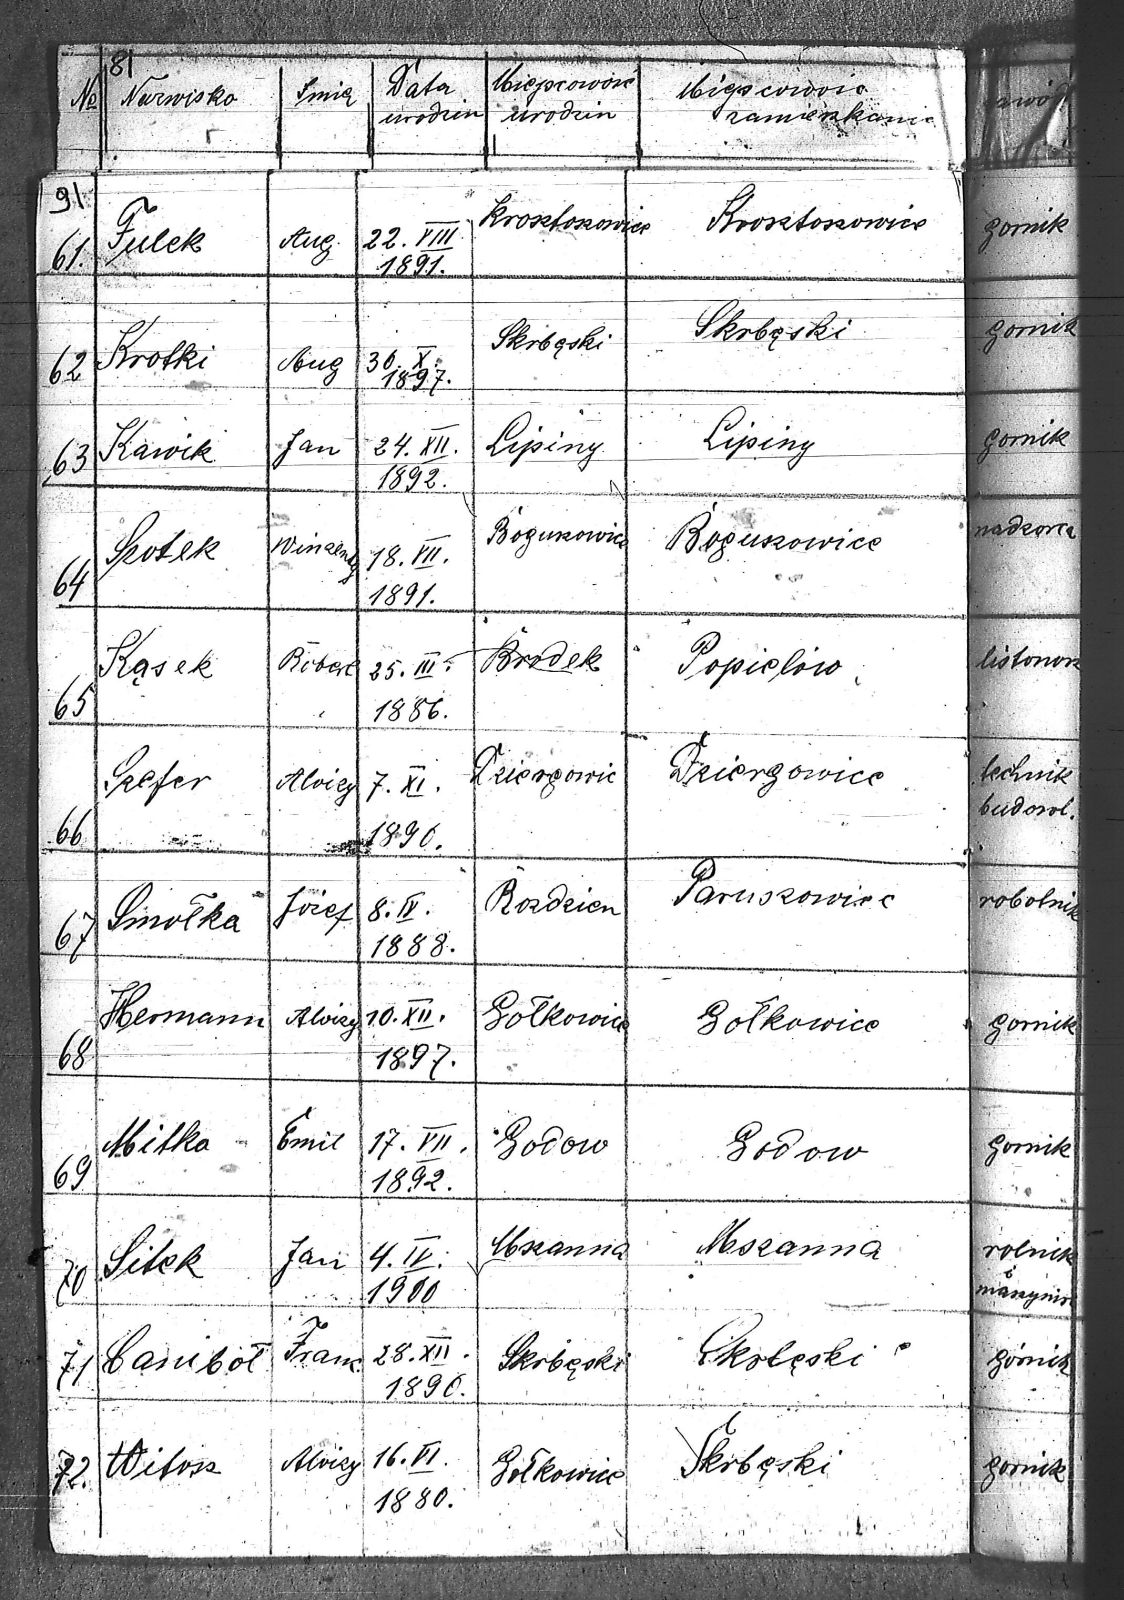 81
№ Nazwisko Imię Data urodzin Miejscowość urodzin Miejscowość zamieszkania
91
61. Fulek Aug. 22. VIII. 1891. Krosztoszowice Krosztoszowice gornik
62 Krotki Aug 30. X. 1897. Skrbęski Skrbęski gornik
63 Kawik Jan 24. XII. 1892. Lipiny Lipiny gornik
64 Szotek Winzenty 18. VII. 1891. Boguszowice Boguszowice nadzorca
65 Kąsek Robert 25. III. 1886. Brodek Popielów listonosz
66 Szefer Aloizy 7. XI. 1890. Dziergowic Dziergowice technik budowl.
67 Smołka Józef 8. IV. 1888. Rozdzien Paruszowice robotnik
68 Hermann Aloizy 10. XII. 1897. Gołkowice Gołkowice gornik
69 Mitko Emil 17. VII. 1892. Godow Godow gornik
70 Sitek Jan 4. IV. 1900 Mszanna Mszanna rolnik maszynis
71 Caniboł Franc 28. XII. 1890. Skrbęski Skrbęski górnik
72. Witosz Aloizy 16. VI. 1880. Gołkowice Skrbęski gornik